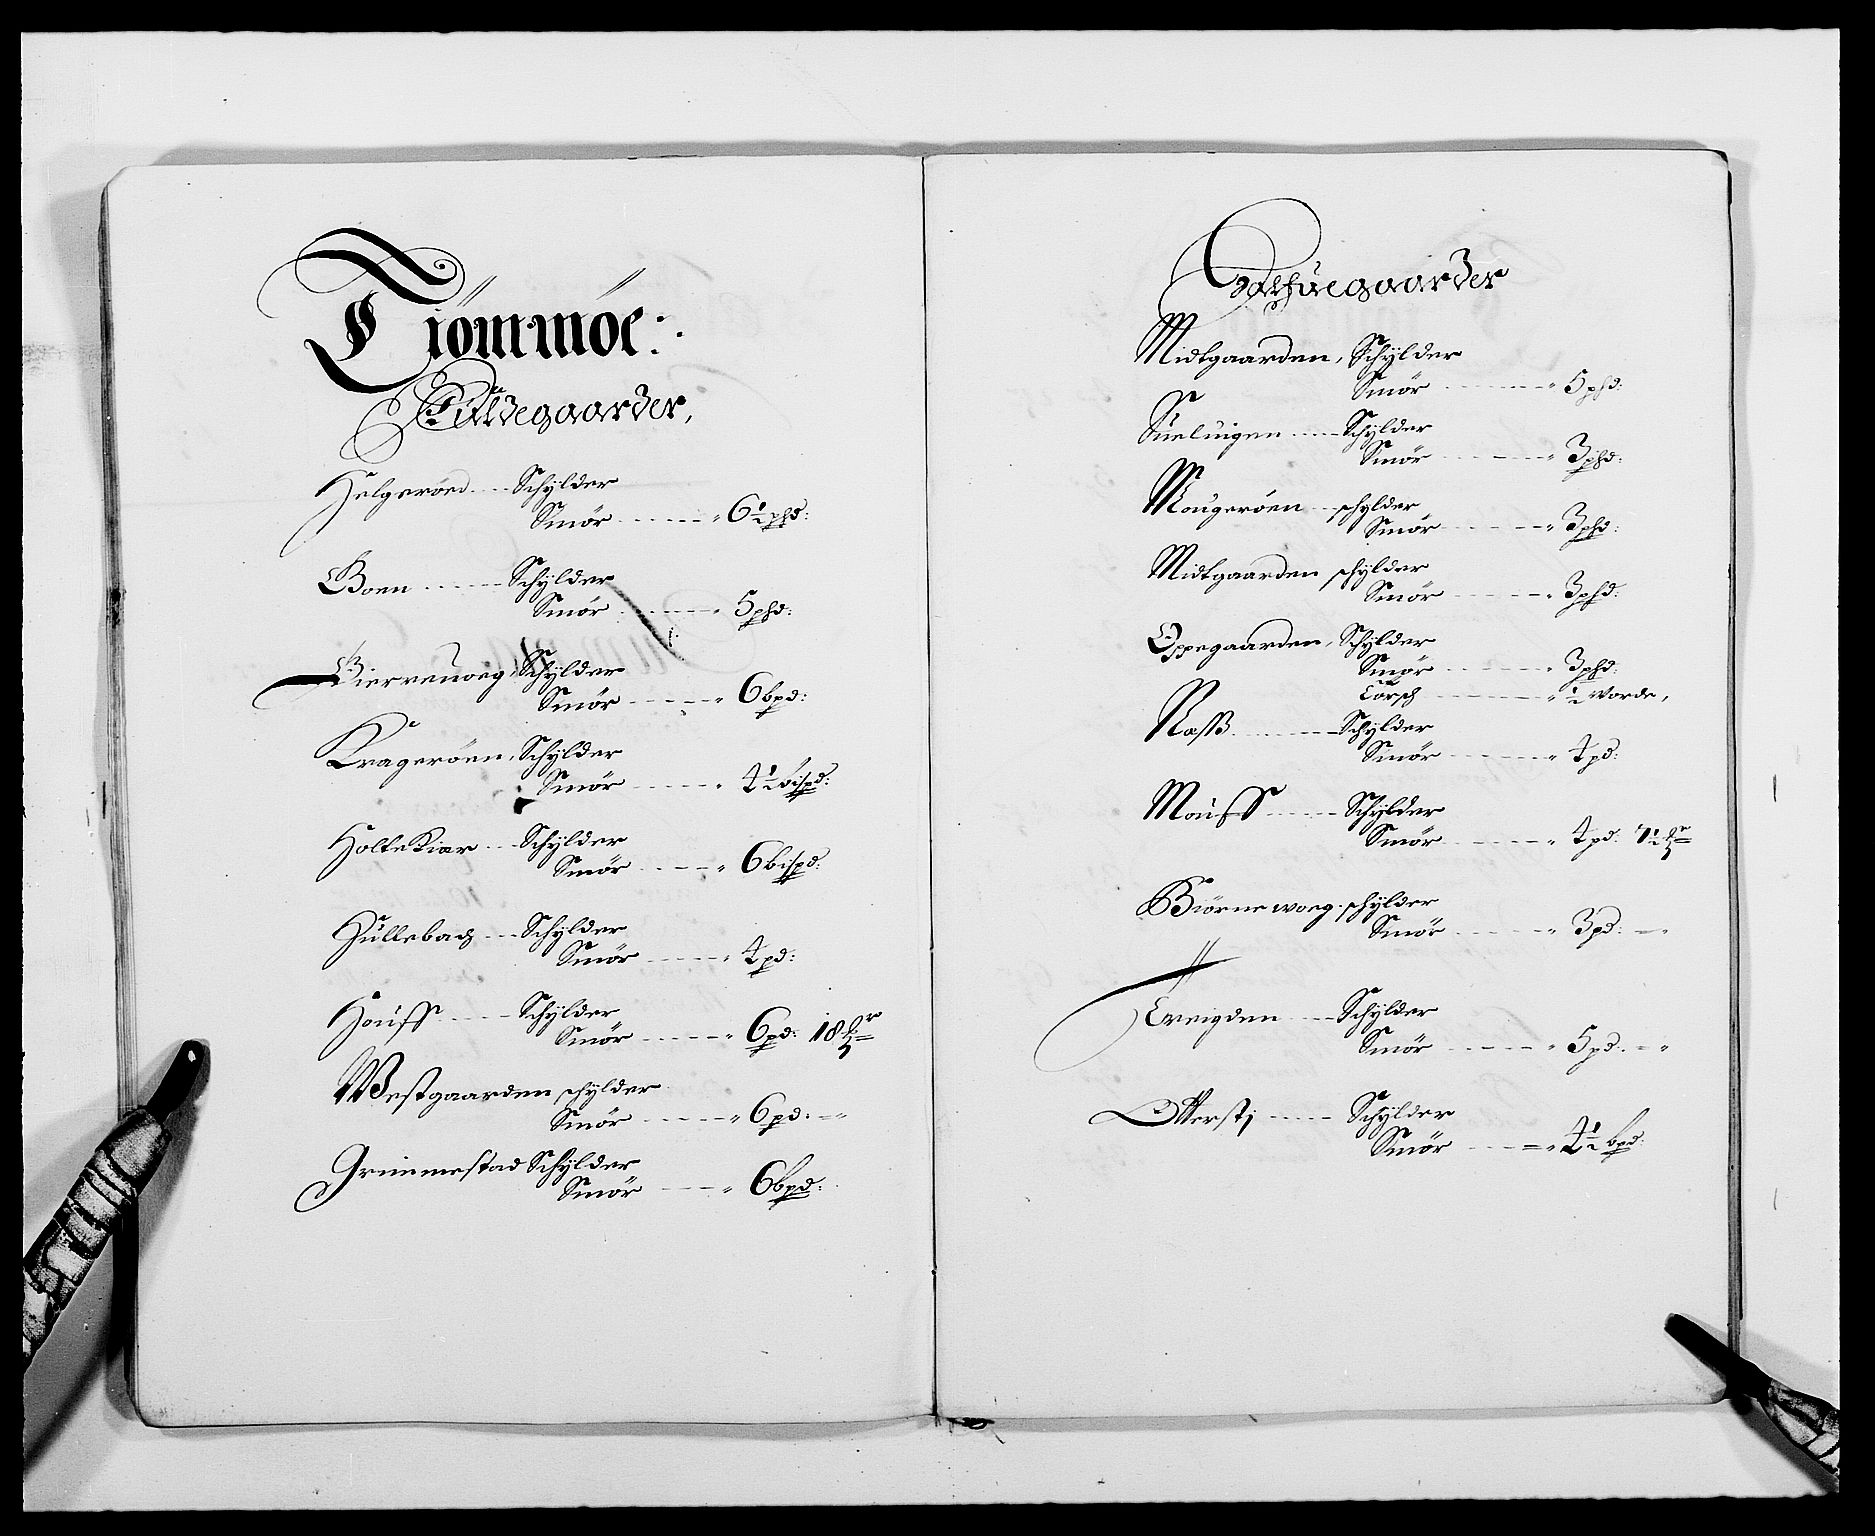 Tiömmöe:
Fuldegaarder,
Helgeröed Schylder
Smör 6½ phd:
Boen Schylder
Smör 5 phd:
Bierrewoeg Schylder
Smör 6 bpd:
Krageröen, Schylder
Smör 4½ bispd:
Holtekiær Schylder
Smör 6 bispd:
Hullebach Schylder
Smör 4 pd:
Houff Schylder
Smör 6 pd: 18
Westgaarden schylder
Smör 6 pd:
Grimmestad Schylder
Smör 6 bpd:
Halfuegaarder
Midtgaarden, Schylder
Smör 5 phd:
Suelwigen Schylder
Smör 3 phd:
Maugeröen schylder
Smör 3 phd:
Midtgaarden schylder
Smör 3 phd:
Oppegaarden, Schylder
Smör 3 phd:
Törsch ½ Vorde,
Næss Schylder
Smör 4 pd:
Mouff Schylder
Smör 4 pd: 7½
Biörnewoeg schylder
Smör 3 pd:
Ereigden Schylder
Smör 5 pd:
Otterstj Schylder
Smör 4½ bpd: